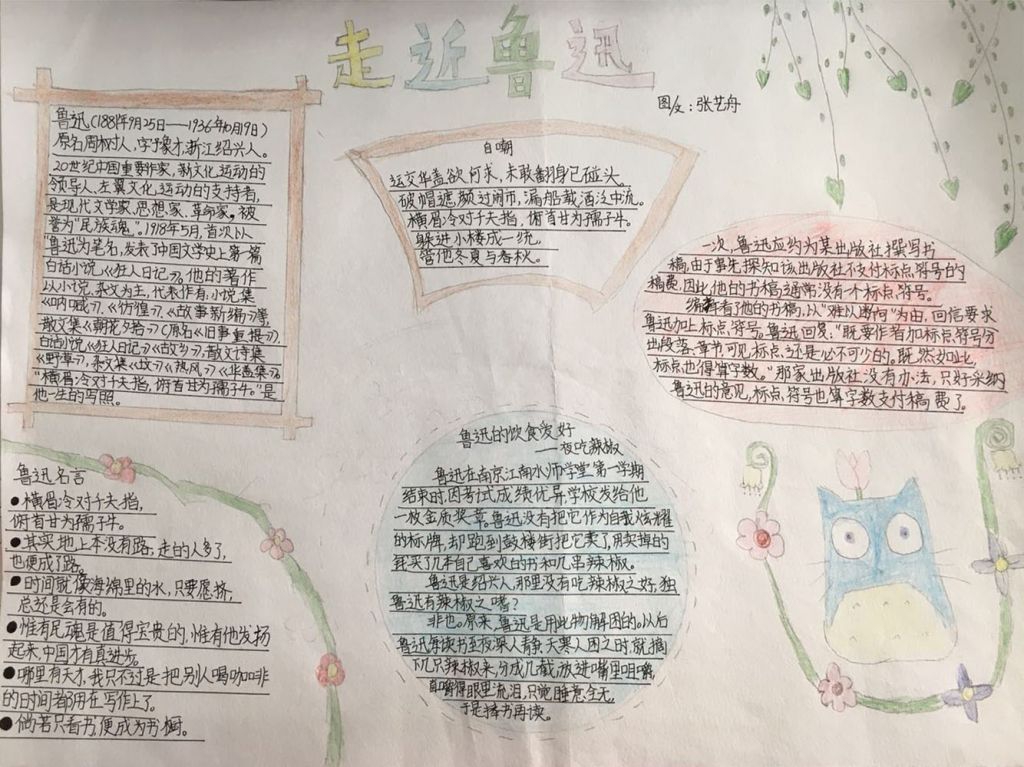 走近鲁迅
图文：张艺舟
鲁迅(1881年9月25日——1936年10月19日)
原名周树人，字豫才，浙江绍兴人。
20世纪中国重要作家，新文化运动的
领导人、左翼文化运动的支持者，
是现代文学家、思想家、革命家。被
誉为"民族魂"。1918年5月，首次以
"鲁迅"为笔名，发表了中国文学史上第一篇
白话小说《狂人日记》。他的著作
以小说、杂文为主，代表作有：小说集
《呐喊》、《彷徨》、《故事新编》等，
散文集《朝花夕拾》(原名《旧事重提》)
白话小说《狂人日记》《故乡》，散文诗集
《野草》，杂文集《坟》《热风》《华盖集》。
"横眉冷对千夫指，俯首甘为孺子牛。"是
他一生的写照。
自嘲
运交华盖欲何求，未敢翻身已碰头。
破帽遮颜过闹市，漏船载酒泛中流。
横眉冷对千夫指，俯首甘为孺子牛。
躲进小楼成一统，
管他冬夏与春秋。
一次，鲁迅应约为某出版社撰写书
稿，由于事先探知该出版社不支付标点符号的
稿费，因此他的书稿通常没有一个标点符号。
编辑看了他的书稿，以"难以断句"为由，回信要求
鲁迅加上标点符号。鲁迅回复："既要作者加标点符号分
出段落、章节，可见标点还是必不可少的。既然如此，
标点也得算字数。"那家出版社没有办法，只好采纳
鲁迅的意见，标点符号也算字数支付稿费了。
鲁迅名言
●横眉冷对千夫指，
俯首甘为孺子牛。
●其实地上本没有路，走的人多了，
也便成了路。
●时间就像海绵里的水，只要愿挤，
总还是会有的。
●惟有民魂是值得宝贵的，惟有他发扬
起来，中国才有真进步。
●哪里有天才，我只不过是把别人喝咖啡
的时间都用在写作上了。
●倘若只看书，便成为书橱。
鲁迅的饮食爱好
——夜吃辣椒
鲁迅在南京江南水师学堂第一学期
结束时，因考试成绩优异，学校发给他
一枚金质奖章。鲁迅没有把它作为自我炫耀
的标牌，却跑到鼓楼街把它卖了，用卖掉的
钱买了几本自己喜欢的书和几串辣椒。
鲁迅是绍兴人，那里没有吃辣椒之好，独
鲁迅有辣椒之嗜？
非也。原来，鲁迅是用此物解困的。从后
鲁迅每读书至夜深人静、天寒人困之时，就摘
下几只辣椒来，分成几截，放进嘴里咀嚼，
直嚼得眼里流泪，只觉睡意全无，
于是捧书再读。